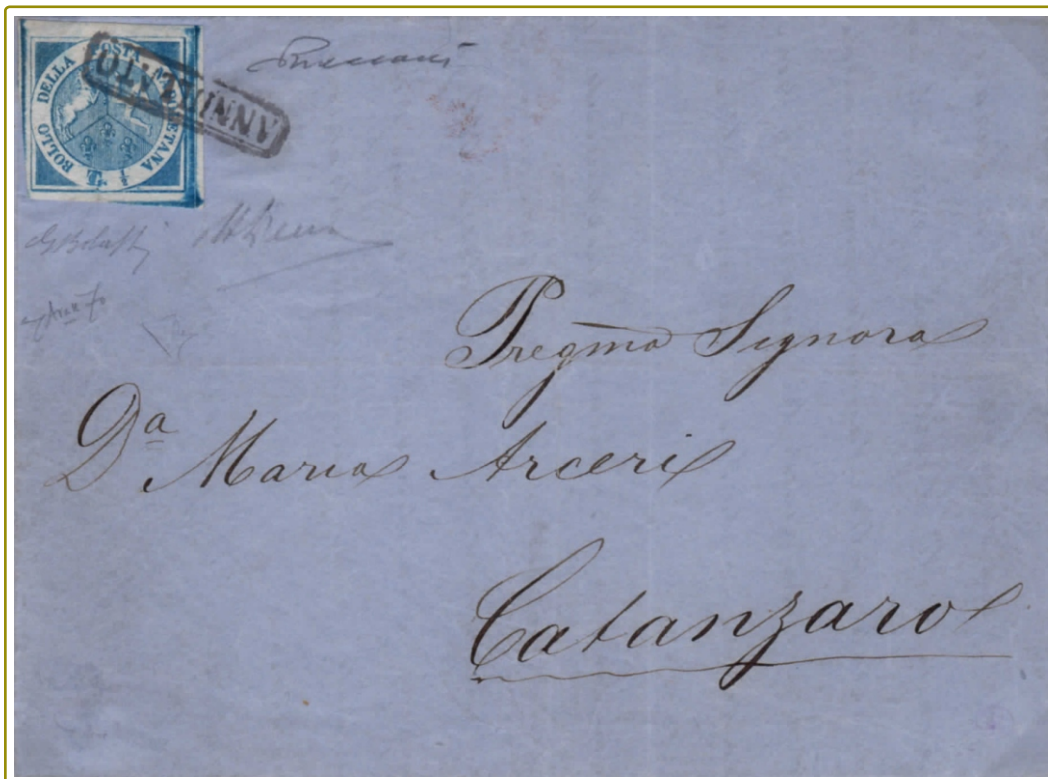 BOLLO DELLA POSTA NAPOLETANA
½ T
ANNULLATO
Pregma Signora
Da Maria Arceri
Catanzaro